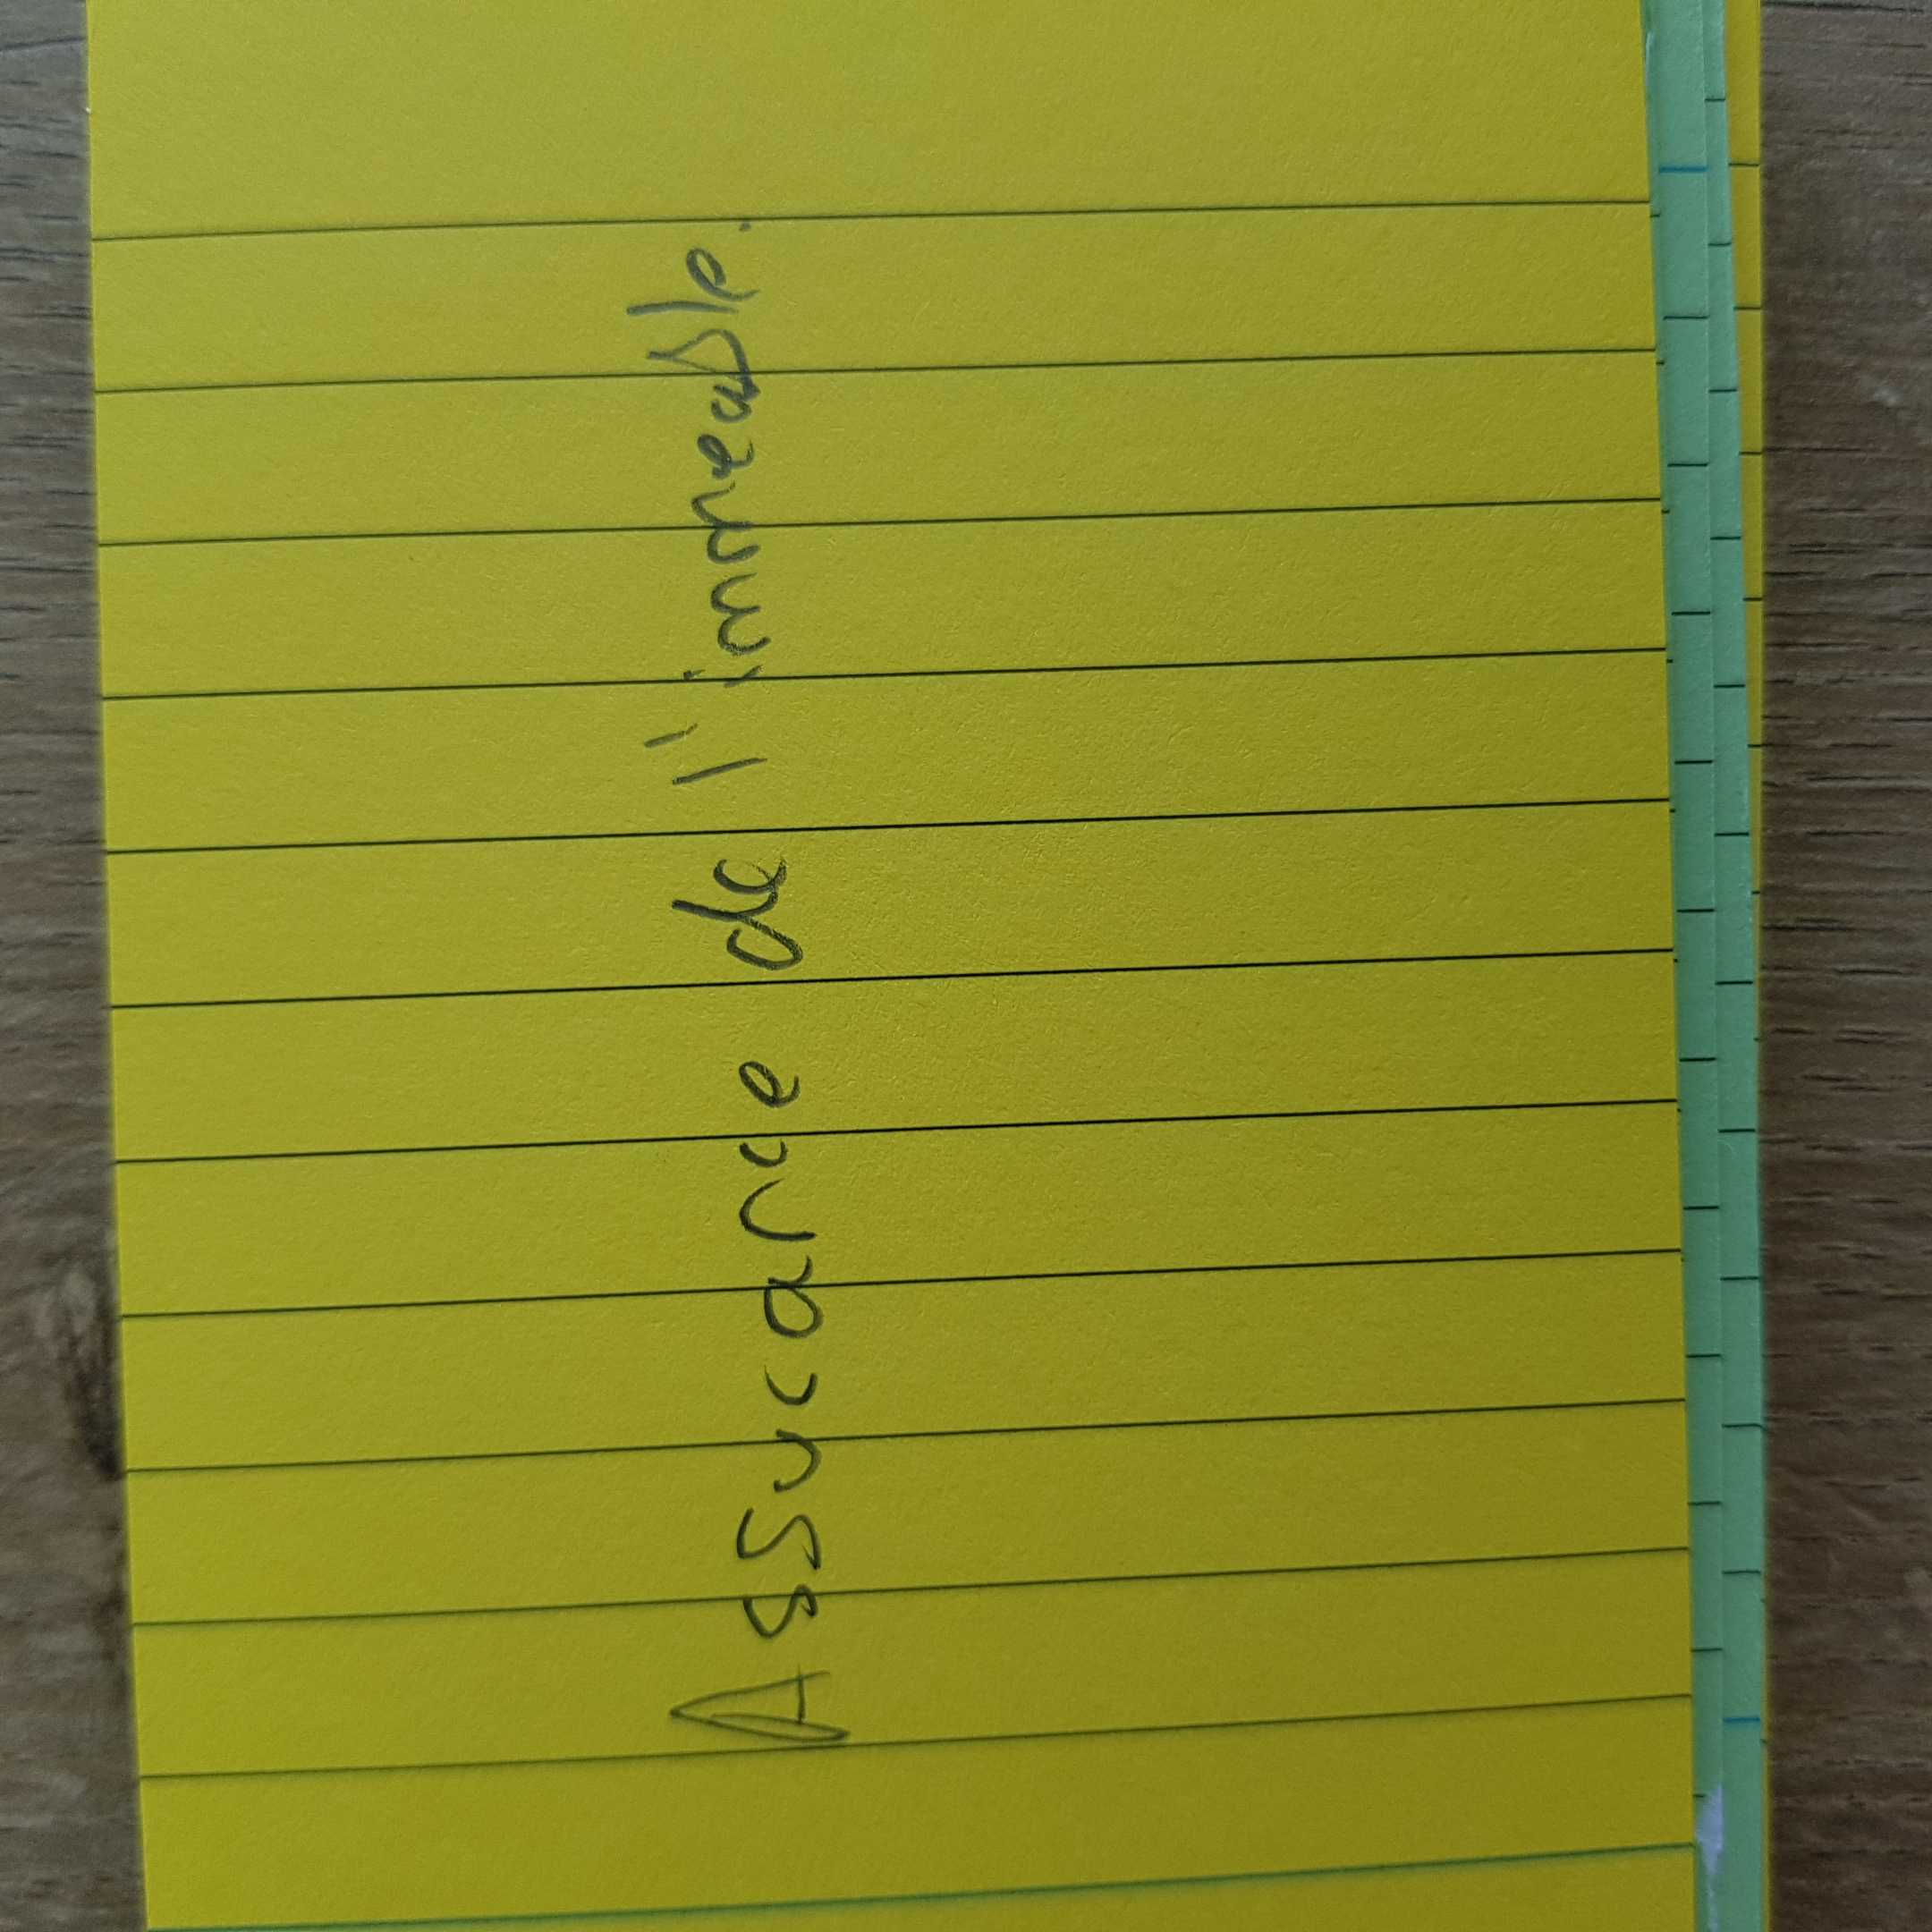 Assurance de l'immeuble.